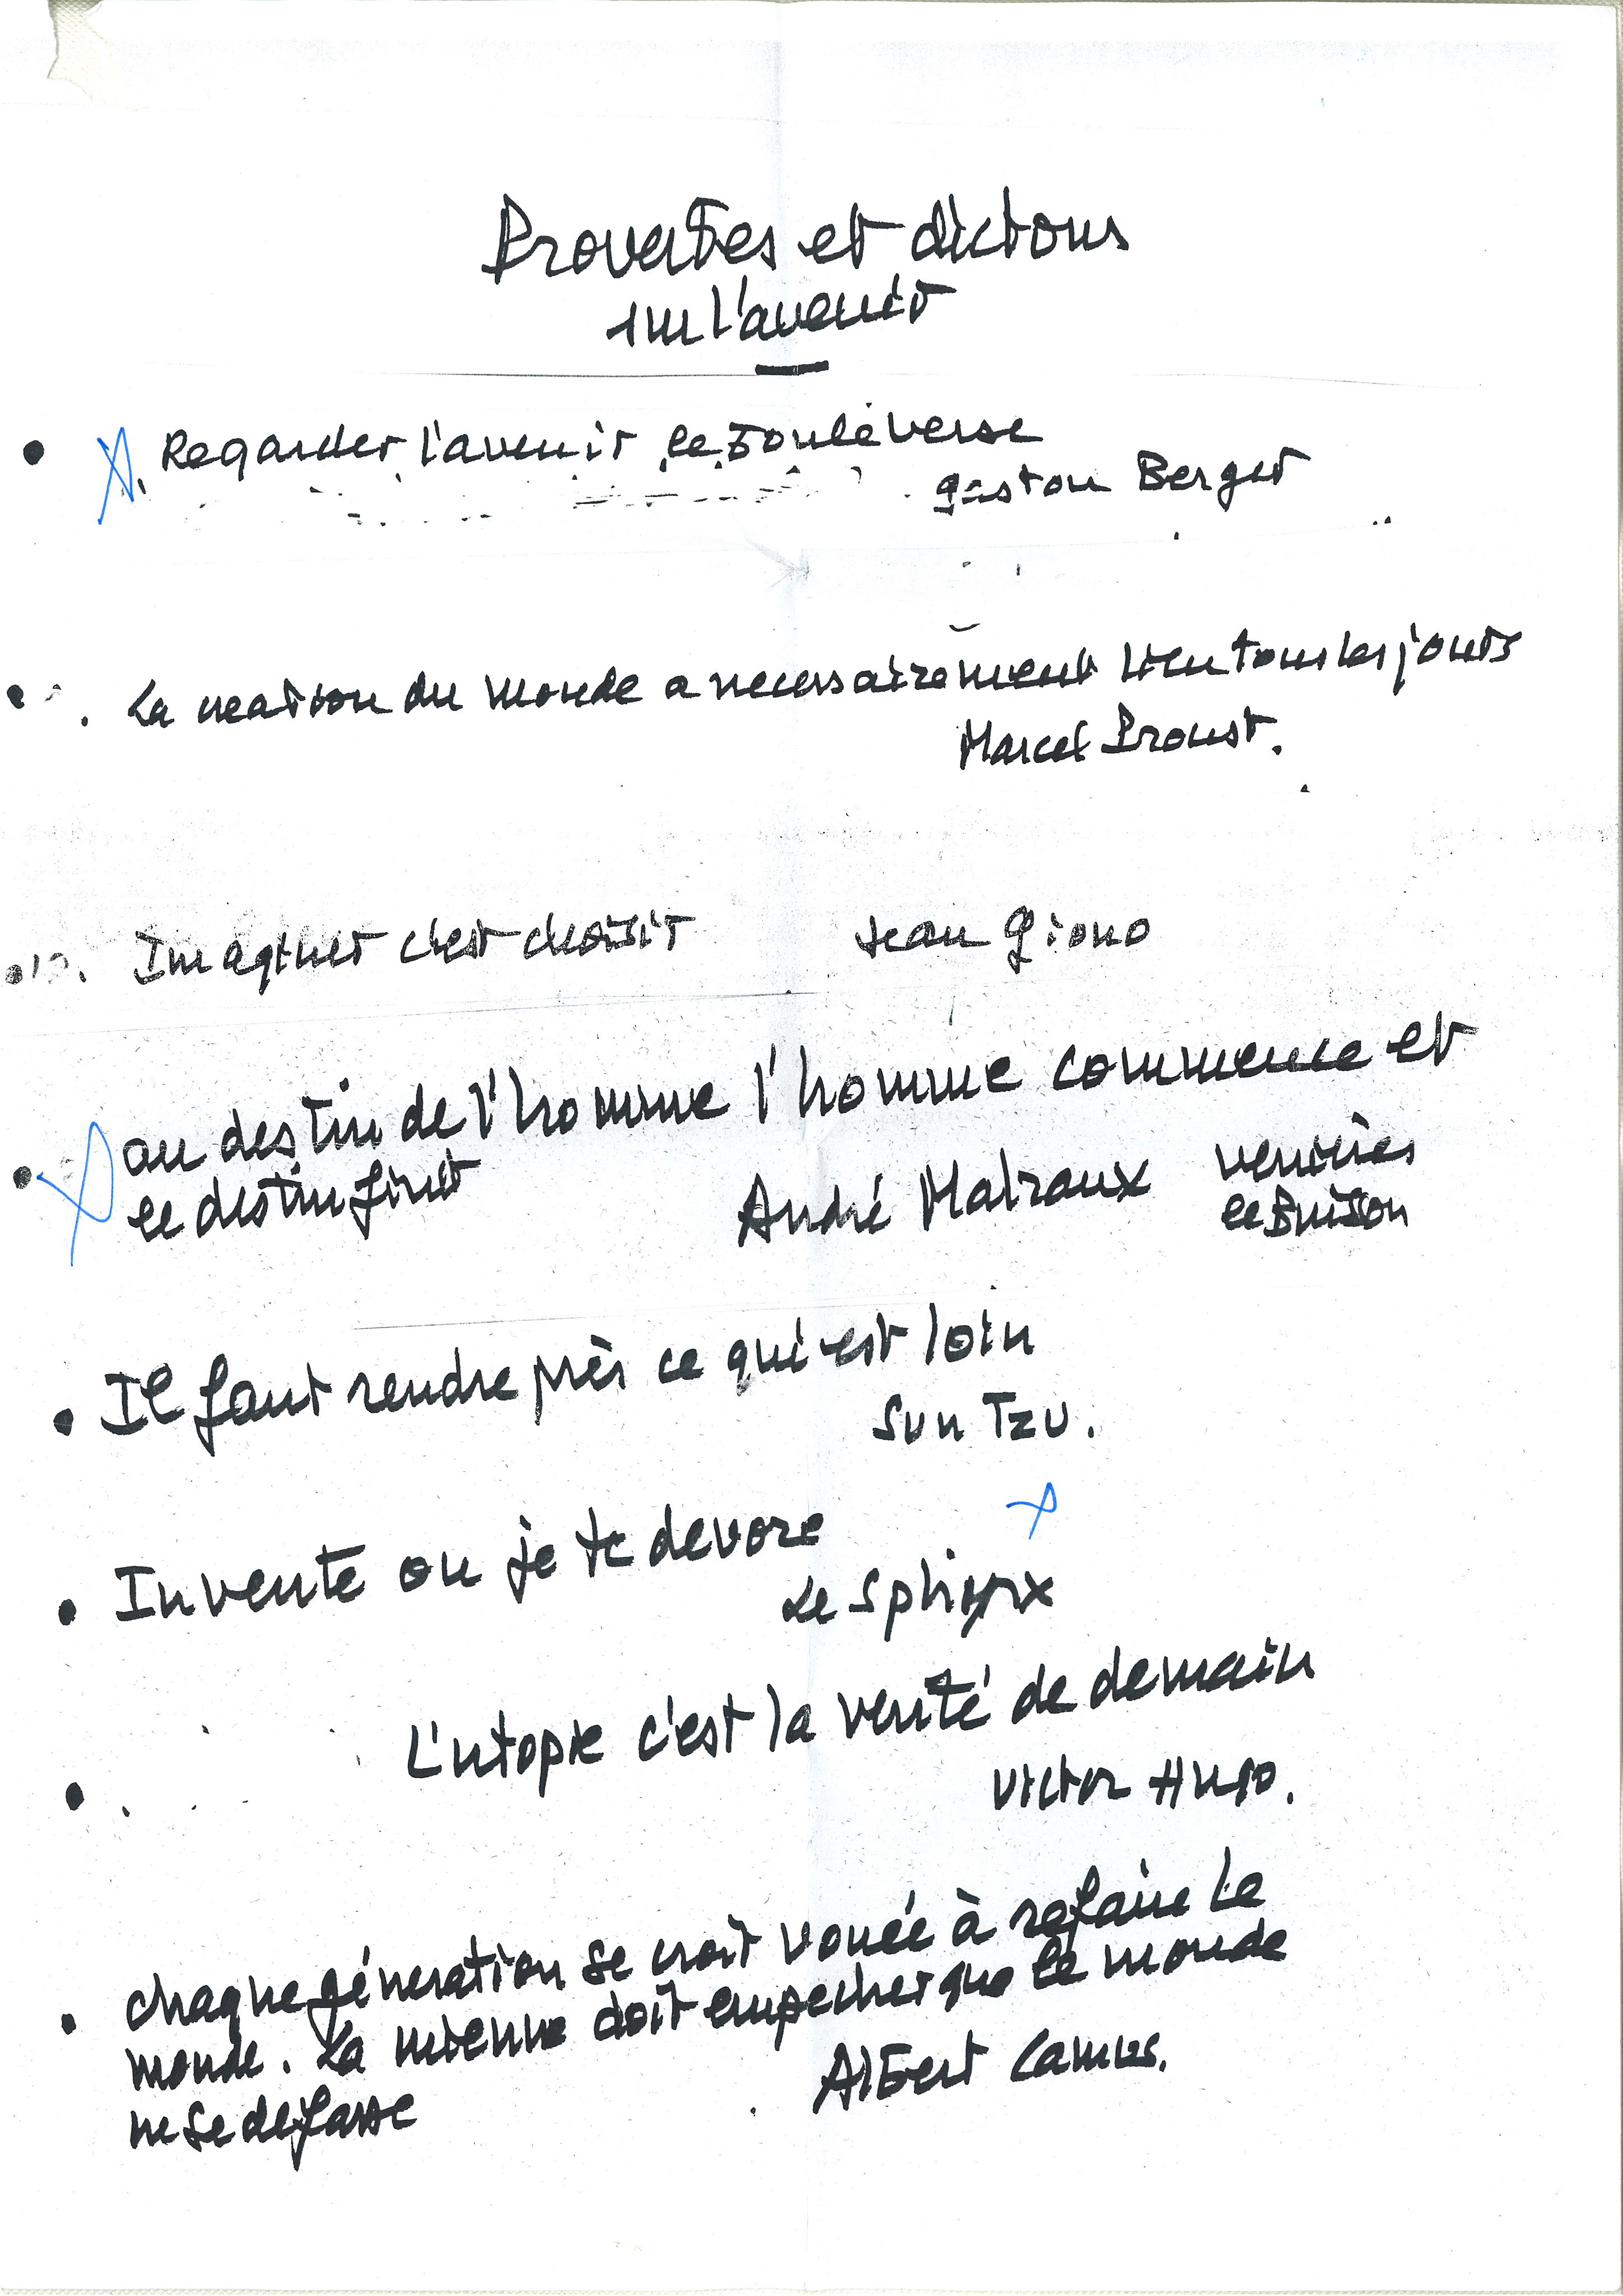 Proverbes et dictons
sur l'avenir
• Regarder l'avenir le bouleverse
Gaston Berger
• La creation du monde a necessairement lieu tous les jours
Marcel Proust.
• Imaginer c'est choisir Jean Giono
• au destin de l'homme l'homme commence et
le destin finit
André Malraux verrières
le Buisson
• Il faut rendre près ce qui est loin
Sun Tzu.
• Invente ou je te devore
Le Sphinx
• L'utopie c'est la verité de demain
Victor Hugo.
• chaque géneration se croit vouée à refaire le
monde. La mienne doit empecher que le monde
ne se defasse
Albert Camus.